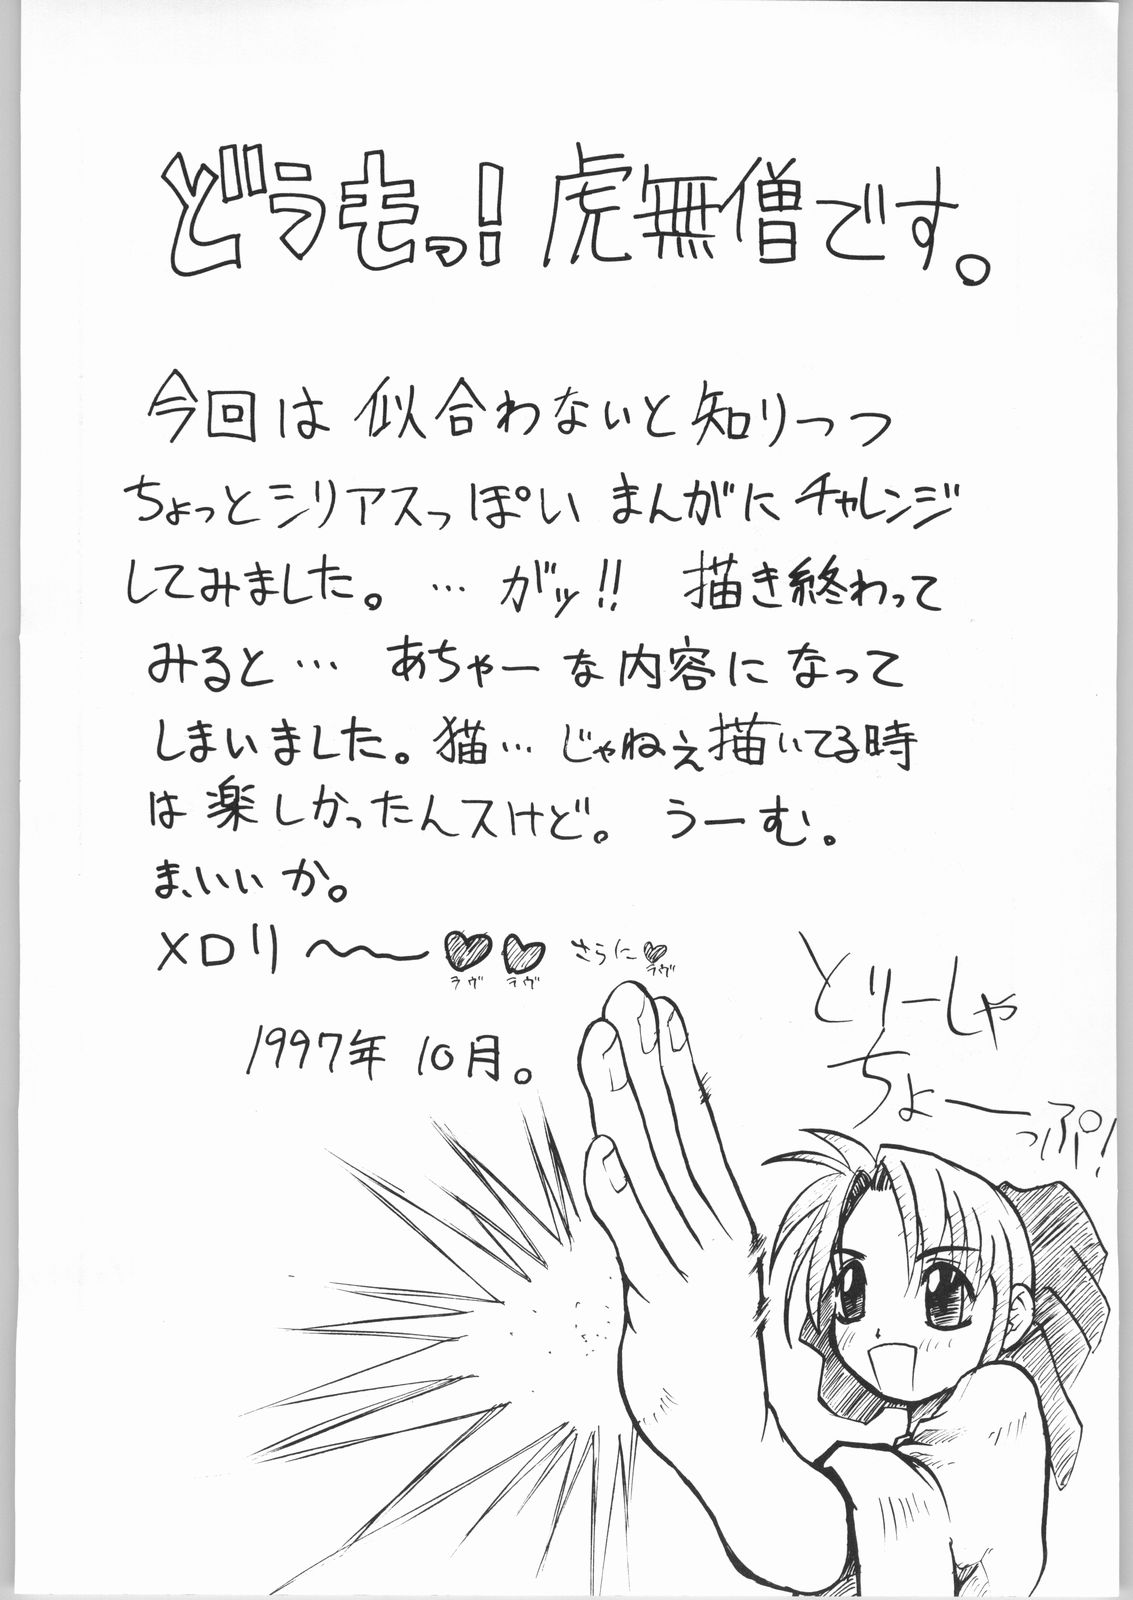 どうもっ!虎無僧です。
今回は似合わないと知りつつ
ちょっとシリアスっぽいまんがにチャレンジ
してみました。…がッ!!描き終わって
みると…あちゃーな内容になって
しまいました。猫…じゃねぇ描いてる時
は楽しかったんスけど。うーむ。
ま、いいか。
メロリ〜〜♥♥さらに♥
ラヴ ラヴ ラヴ
1997年10月。
とりーしゃ
ちょーっぷ!